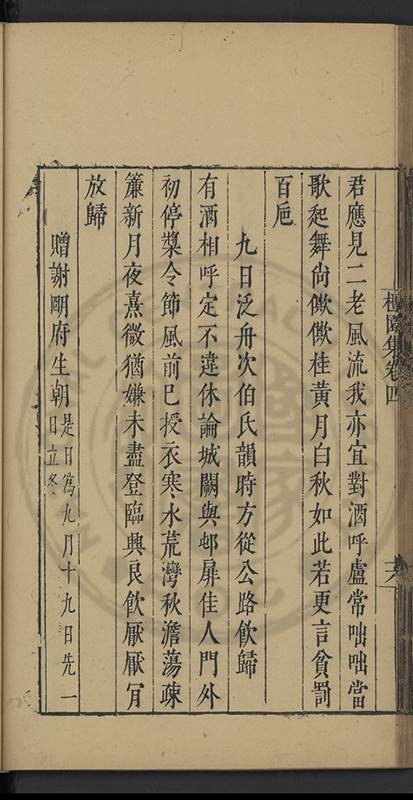 君應見二老風流我亦宜對酒呼盧常咄咄當
歌起舞尚僛僛桂黃月白秋如此若更言貧罰
百巵
九日泛舟次伯氏韻時方從公路飲歸
有酒相呼定不違休論城闕與邨扉佳人門外
初停槳令節風前已授衣寒水荒灣秋澹蕩疎
簾新月夜熹微猶嫌未盡登臨興良飲厭厭肎
放歸
贈謝朙府生朝是日爲九月十九日先一
日立冬
集卷四